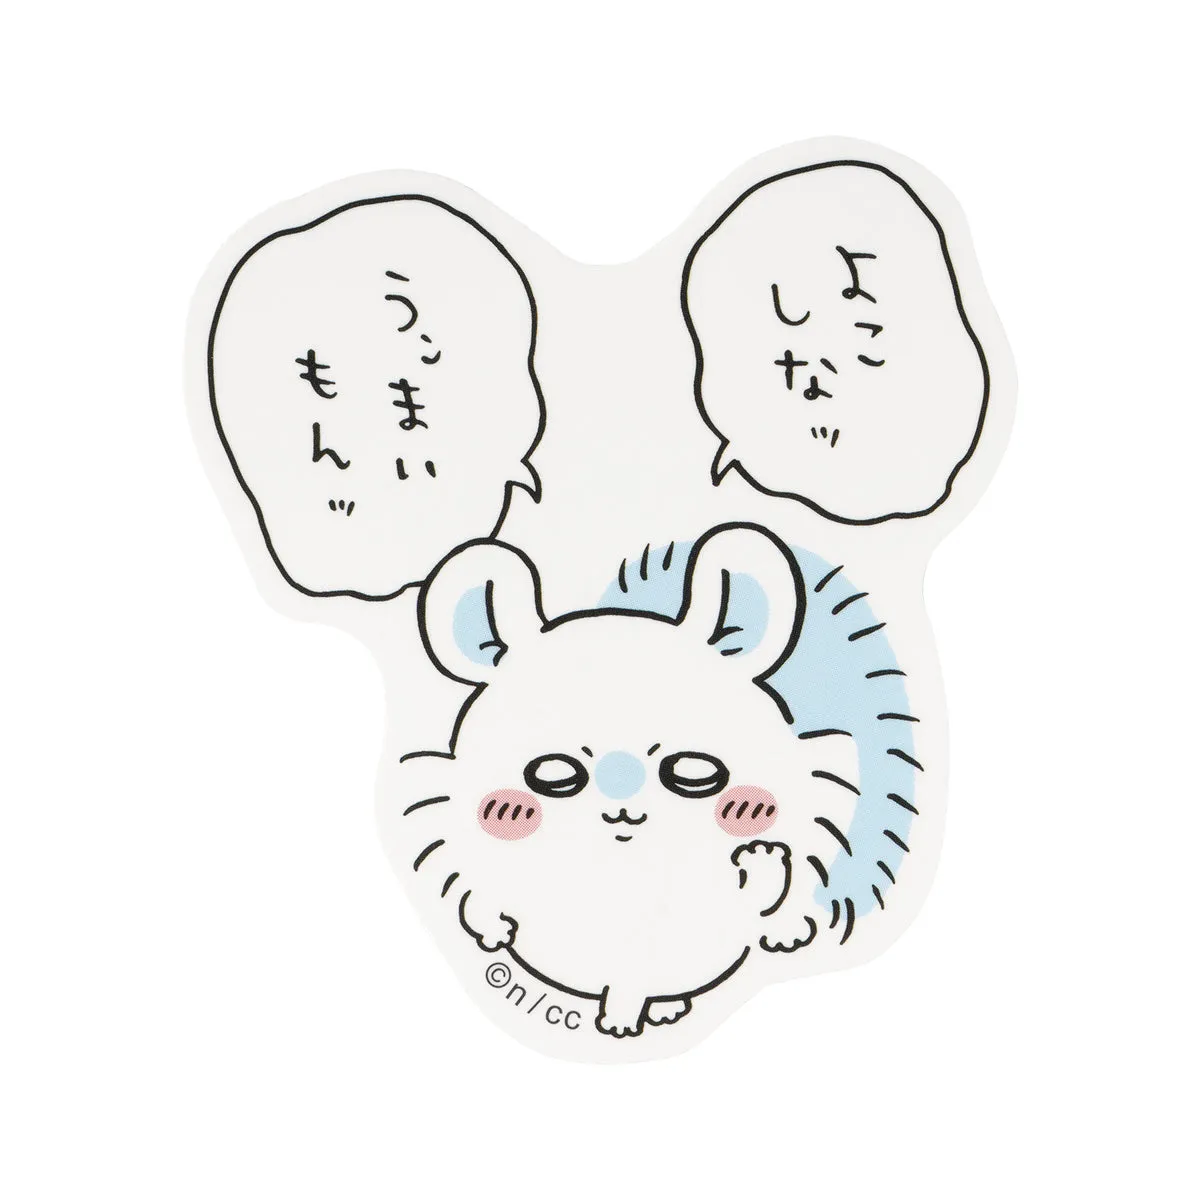 よこ
しなッ
うンまい
もんッ
©n/cc